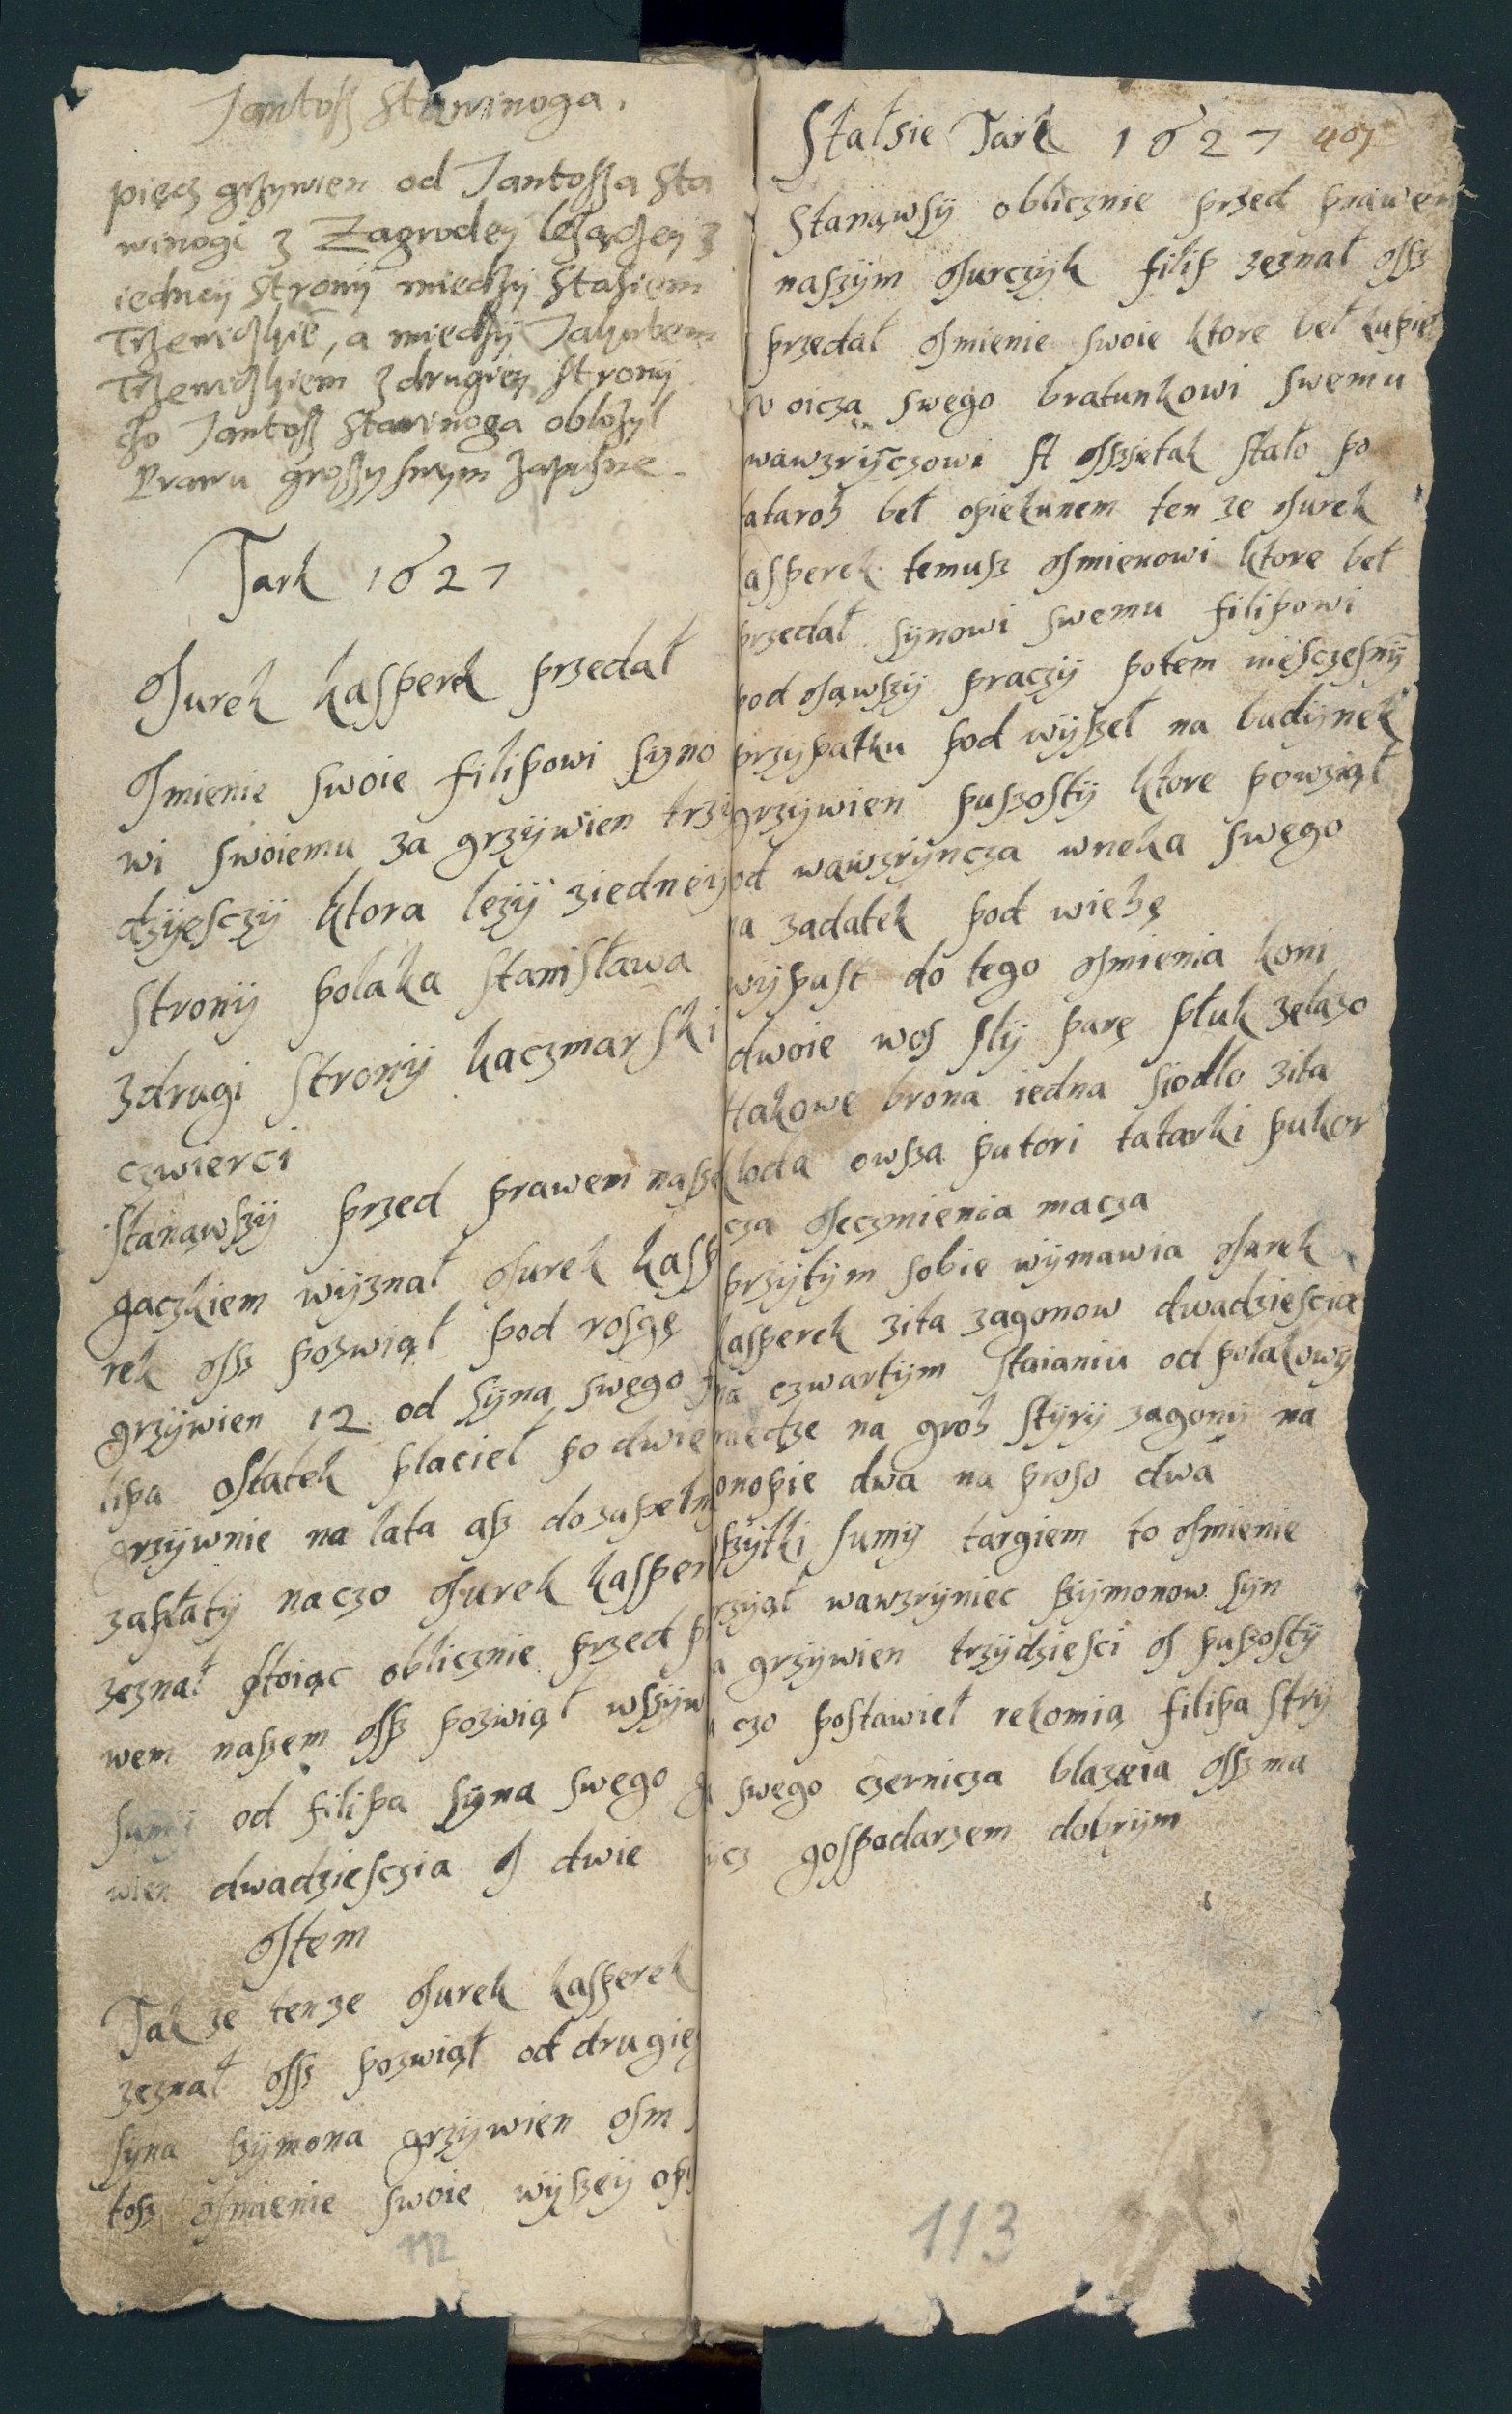 Jantoss Stawinoga.
pięcz grzywien od Jantossa Sta
winogi z Zagrodey leżączey z
iedney strony miedzy Stasiem
Trzenickiē, a miedzy Jakubem
Trzenickiem z drugiey strony
czo Jantoss Stawinoga obłożył
Prawu groszy swym zapisne.
Tark 1627
Jurek kassperek przedał
Jmienie swoie filipowi syno
wi swoiemu za grzÿwien trzÿ
dzÿesczÿ ktora lezÿ ziedneÿ
stronÿ polaka stanisława
zdrugi stronÿ kaczmarski
czwierci
stanąwszÿ przed prawem nasze
gaczkiem wÿznał Jurek kassp
rek Jssz pozwiął pod rosgę
grzÿwien 12 od sÿna swego
lipa ostatek płacieł po dwie
grzÿwnie na lata asz do zapełn
zapłatÿ na czo Jurek kassper
zeznał stoiąc oblicznie przed p
wem naszem Jssz pozwiął wszÿw
sumÿ od filipa sÿna swego g
wien dwadziesczia J dwie
Jtem
Tak ze tenze Jurek kassperek
zeznał Jssz pozwiął od drugieg
sÿna szÿmona grzÿwien osm
tosz Jmienie swoie wÿszeÿ opi
112
Stałsie Tark 1627 407
Stanąwsÿ oblicznie przed prawem
naszÿm Jurczÿk filip zeznał Jssz
przedał Jmienie swoie ktore beł kupieł
w oicza swego bratunkowi swemu
wawzrÿczowi st Jsszsietak stało po
tataroh beł opiekunem ten ze Jurek
kassperek temusz Jmienowi ktore beł
przedał sÿnowi swemu filipowi
pod Jawszÿ praczÿ potem niesczesnÿ
przÿpatku pod wÿszeł na budÿnek
grzÿwien puszostÿ ktore powziął
od wawzrÿncza wneka swego
na zadatek pod wiehę
wÿpust do tego Jmienia koni
dwoie wos slÿ parę płuk zelazo
ttakowe brona iedna siodło zita
kłoda owsza putori tatarki pukor
cza Jeczmienia macza
przÿtÿm sobie wÿmawia Jurek
kassperek zita zagonow dwadziescia
na czwartÿm staianiu od polakowÿ
miedze na groh stÿrÿ zagonÿ na
konopie dwa na proso dwa
wszÿtki sumÿ targiem to Jmienie
przÿął wawzrÿniec szÿmonow sÿn
za grzÿwien trzÿdziesci J puszostÿ
na czo postawieł rekomią filipa strÿ
swego czernicza blazeia Jssz ma
bÿcz gospodarzem dobrÿm
113